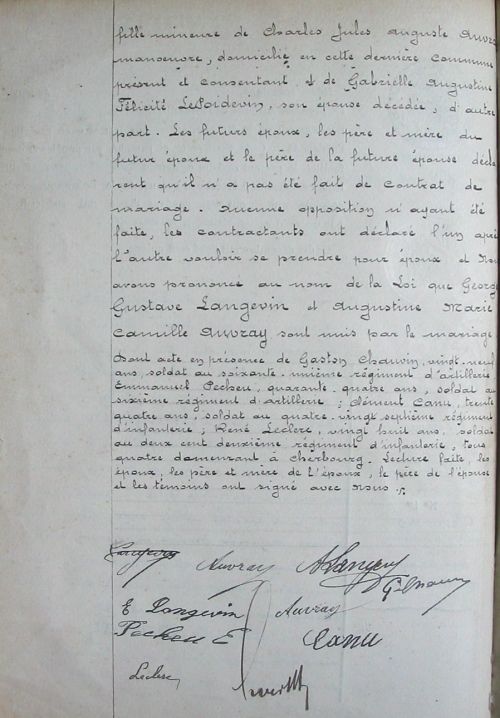 fille mineure de Charles Jules Auguste Auvray
manoeuvre, domicilié en cette dernière commune
présent et consentant, & de Gabrielle Augustine
Félicité LePoidevin, son épouse décédée, d'autre
part. Les futurs époux, les père et mère du
futur époux et le père de la future épouse décla
rent qu'il n'a pas été fait de contrat de
mariage. Aucune opposition n'ayant été
faite, les contractants ont déclaré l'un après
l'autre vouloir se prendre pour époux et Nous
avons prononcé au nom de la Loi que Georges
Gustave Langevin et Augustine Marie
Camille Auvray sont unis par le mariage
Dont acte en présence de Gaston Chauvin, vingt-neuf
ans, soldat au soixante-unième régiment d'artillerie
Emmanuel Pecheu, quarante-quatre ans, soldat au
sixième régiment d'artillerie ; Clément Canu, trente
quatre ans, soldat au quatre-vingt septième régiment
d'infanterie ; René Leclerc, vingt huit ans, soldat
au deux cent deuxième régiment d'infanterie, tous
quatre demeurant à Cherbourg. Lecture faite, les
époux, les père et mère de l'époux, le père de l'épouse
et les témoins ont signé avec Nous
Auvray A Langevin
G. Chauvin
E Langevin Auvray
Pecheu E Canu
Leclerc